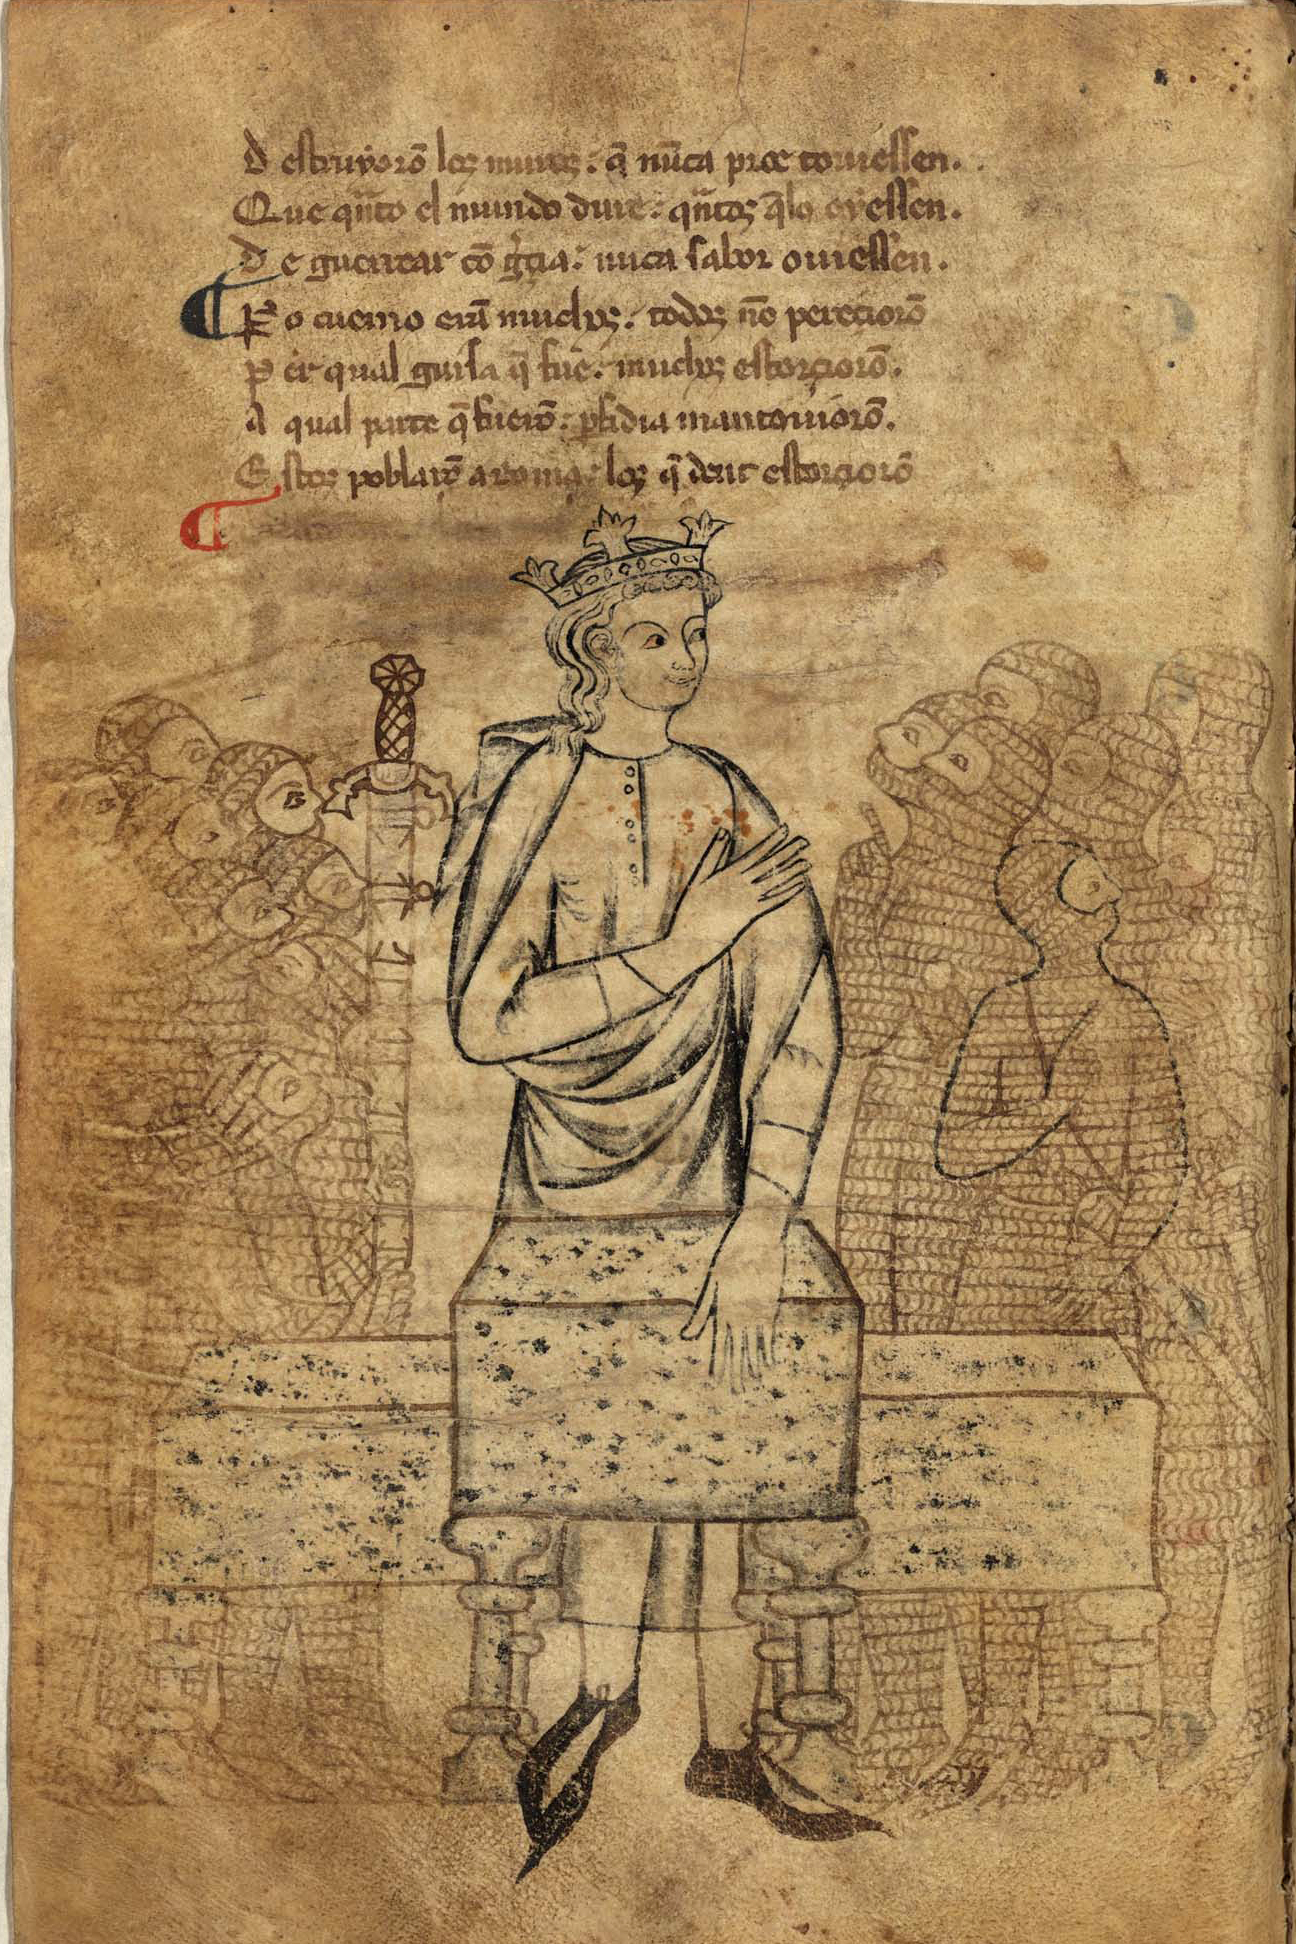 D estruyorō los muros: q̄ nūca proe touiessen.
Que qn̄to el mundo dure: qn̄tos q̄lo oyessen.
D e guerrear cō greçia: nuca sabor ouiessen.
¶ Po cuemo erā muchos: todos nō pereçiorō
P er qual guisa q̄ fue: muchos estorçiorō.
A qual parte q̄ fuerō: pfidia mantouiorō.
E stos poblarō a roma: los q̄ dent estorçiorō
¶